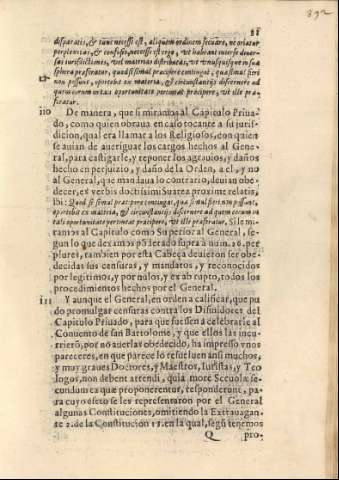 392
disparatis, & tunc necesse est, aliquem ordinem servare, ne oriatur
perplexitas, & confusio, necesse est ergo, ut habeant inter se diver-
sas iurisdictiones, vel materias distributas, ut unusquisque in sua
sphera præferatur, quod si simul præcipere contingat, quia simul fieri
non possunt, oportebit ex materia, & circunstantijs discernere ad
quem eorum in tali oportunitate pertineat præcipere, ut ille præ-
feratur.
110 De manera, que si miramos al Capitulo Priua-
do, como quien obraua en caso tocante à su juris-
dicion, qual era llamar a los Religiosos, con quien
se auian de aueriguar los cargos hechos al Gene-
ral, para castigarle, y reponer los agrauios, y daños
hecho en perjuizio, y daño de la Orden, a el, y no
al General, que mandaua lo contrario, deuian obe-
decer, ex verbis doctissimi Suarez proxime relatis,
ibi: Quod si simul præcipere contingat, quia simul fieri non possunt,
oportebit ex materia, & circunstantijs discernere ad quem eorum in
tali oportunitate pertineat præcipere, ut ille præferatur. Si le mira-
mos al Capitulo como Superior al General, se-
gun lo que dexamos põderado supra à num. 26. per
plures, tambien por esta Cabeça deuieron ser obe-
decidas sus censuras, y mandatos, y reconocidos
por legitimos, y por nulos, y ex abrupto, todos los
procedimientos hechos por el General.
111 Y aunque el General, en orden a calificar, que pu-
do promulgar censuras contra los Difinidores del
Capitulo Priuado, para que fuessen a celebrarle al
Conuento de san Bartolome, y que ellos las incu-
rrierõ, por no auerlas obedecido, ha impresso vnos
pareceres, en que parece lo resueluen ansi muchos,
y muy graues Doctores, y Maestros, Iuristas, y Teo
logos, non debent attendi, quia more Scholæ se-
cundum ea quæ proponerentur, responderunt, pa-
ra cuyo efeto se les representaron por el General
algunas Constituciones, omitiendo la Extrauagan-
te 2. de la Constitucion 15. en la qual, segũ tenemos
Q pro-